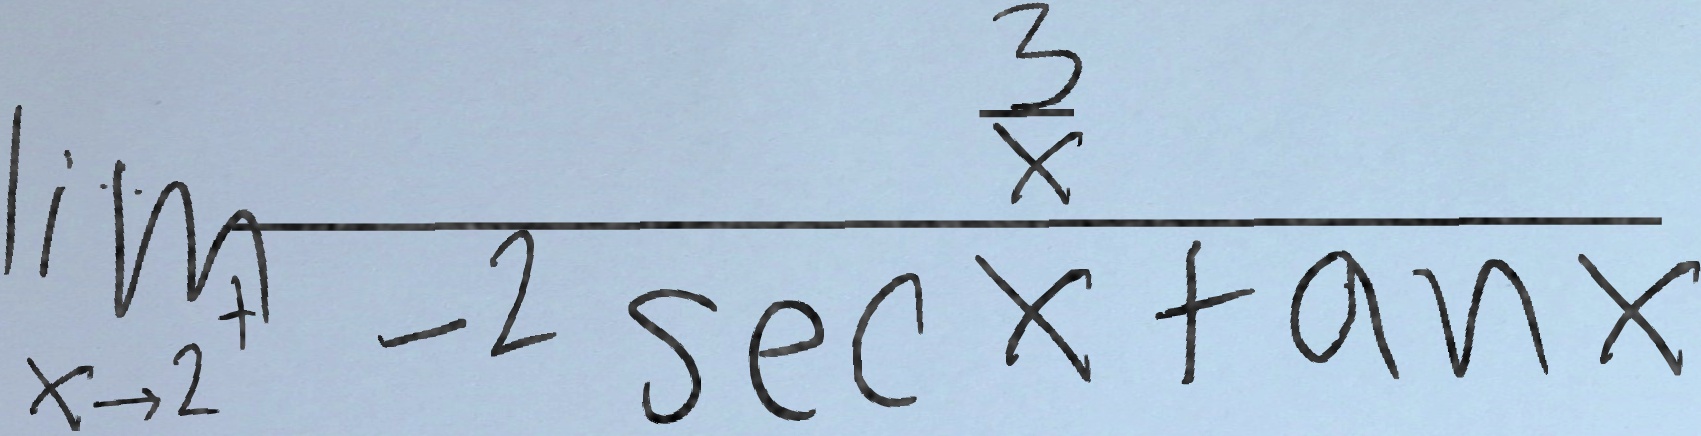 \lim_{x \to 2^+} \frac{\frac{3}{x}}{-2 \sec x \tan x}